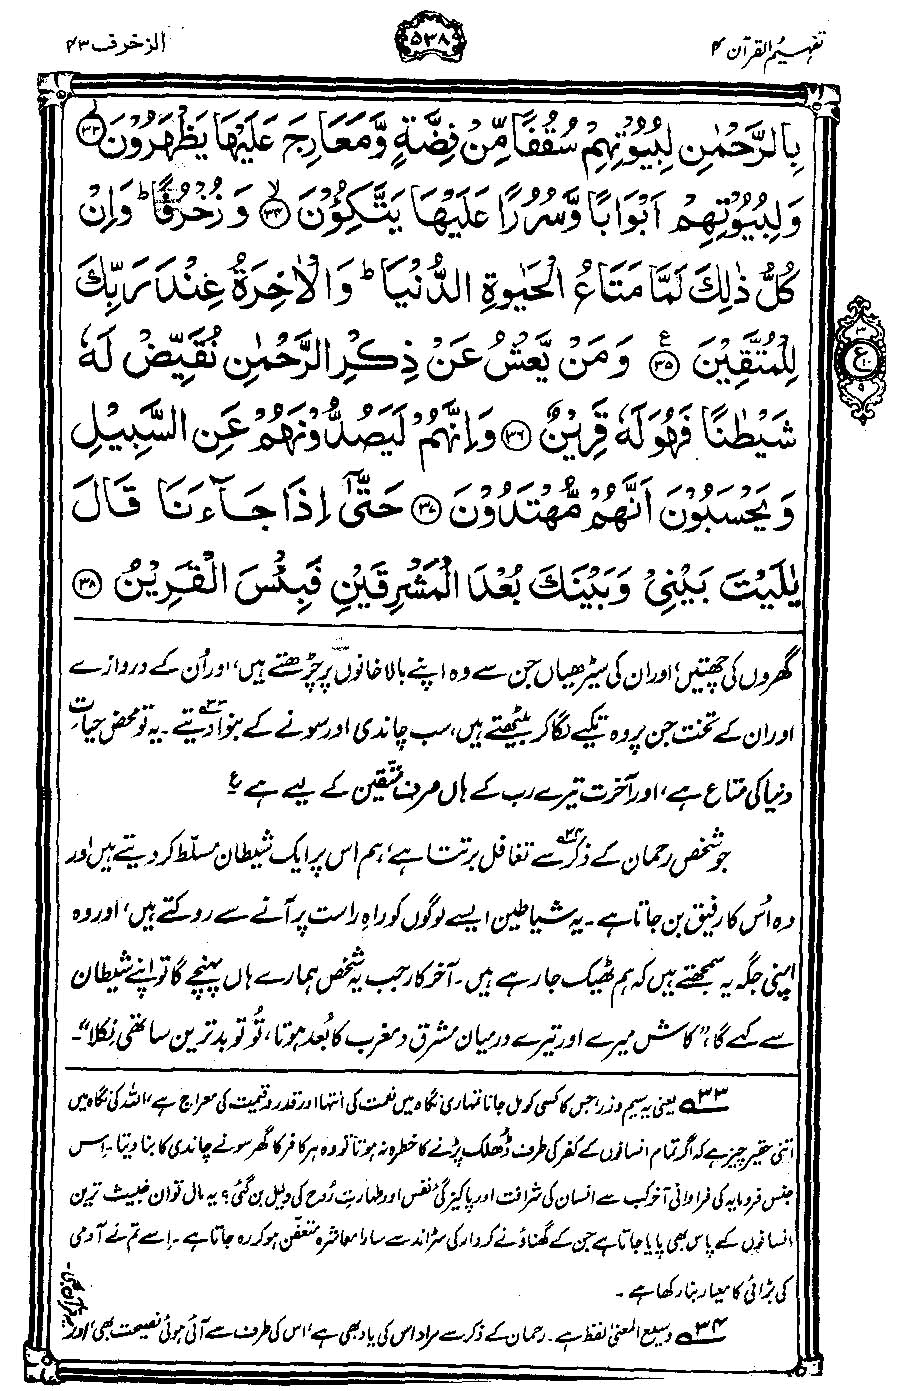 تفہیم القرآن ۴
۵۳۸
الزخرف ۴۳
بِالرَّحْمٰنِ لِبُيُوْتِهِمْ سُقُفًا مِّنْ فِضَّةٍ وَّمَعَارِجَ عَلَيْهَا يَظْهَرُوْنَ ۙ﴿۳۳﴾
وَلِبُيُوْتِهِمْ اَبْوَابًا وَّسُرُرًا عَلَيْهَا يَتَّكِـُٔوْنَ ۙ﴿۳۴﴾ وَزُخْرُفًا ؕ وَاِنْ
كُلُّ ذٰلِكَ لَمَّا مَتَاعُ الْحَيٰوةِ الدُّنْيَا ؕ وَالْاٰخِرَةُ عِنْدَ رَبِّكَ
لِلْمُتَّقِيْنَ ﴿۳۵﴾ وَمَنْ يَّعْشُ عَنْ ذِكْرِ الرَّحْمٰنِ نُقَيِّضْ لَهٗ
شَيْطٰنًا فَهُوَ لَهٗ قَرِيْنٌ ﴿۳۶﴾ وَاِنَّهُمْ لَيَصُدُّوْنَهُمْ عَنِ السَّبِيْلِ
وَيَحْسَبُوْنَ اَنَّهُمْ مُّهْتَدُوْنَ ﴿۳۷﴾ حَتّٰٓى اِذَا جَآءَنَا قَالَ
يٰلَيْتَ بَيْنِيْ وَبَيْنَكَ بُعْدَ الْمَشْرِقَيْنِ فَبِئْسَ الْقَرِيْنُ ﴿۳۸﴾
ع
گھروں کی چھتیں، اور ان کی سیڑھیاں جن سے وہ اپنے بالا خانوں پر چڑھتے ہیں، اور اُن کے دروازے
اور ان کے تخت جن پر وہ تکیے لگا کر بیٹھتے ہیں، سب چاندی اور سونے کے بنوا دیتے۳۳۔ یہ تو محض حیات
دنیا کی متاع ہے، اور آخرت تیرے رب کے ہاں صرف متّقین کے لیے ہے ع
جو شخص رحمان کے ذکر۳۴ سے تغافل برتتا ہے، ہم اس پر ایک شیطان مسلّط کر دیتے ہیں اور
وہ اُس کا رفیق بن جاتا ہے۔ یہ شیاطین ایسے لوگوں کو راہِ راست پر آنے سے روکتے ہیں، اور وہ
اپنی جگہ یہ سمجھتے ہیں کہ ہم ٹھیک جا رہے ہیں۔ آخر کار جب یہ شخص ہمارے ہاں پہنچے گا تو اپنے شیطان
سے کہے گا، "کاش میرے اور تیرے درمیان مشرق و مغرب کا بُعد ہوتا، تُو تو بدترین ساتھی نِکلا"۔
۳۳ یعنی یہ سیم و زر، جس کا کسی کو مل جانا تمہاری نگاہ میں نعمت کی انتہا اور قدر و قیمت کی معراج ہے، اللہ کی نگاہ میں
اتنی حقیر چیز ہے کہ اگر تمام انسانوں کے کفر کی طرف ڈھلک پڑنے کا خطرہ نہ ہوتا تو وہ ہر کافر کا گھر سونے چاندی کا بنا دیتا۔ اِس
جنسِ فرومایہ کی فراوانی آخر کب سے انسان کی شرافت اور پاکیزگیٔ نفس اور طہارتِ رُوح کی دلیل بن گئی؟ یہ مال تو ان خبیث ترین
انسانوں کے پاس بھی پایا جاتا ہے جن کے گھناؤنے کردار کی سڑاند سے سارا معاشرہ متعفّن ہو کر رہ جاتا ہے۔ اِسے تم نے آدمی
کی بڑائی کا معیار بنا رکھا ہے۔
۳۴ وسیع المعنیٰ لفظ ہے۔ رحمان کے ذکر سے مراد اس کی یاد بھی ہے، اس کی طرف سے آئی ہوئی نصیحت بھی، اور